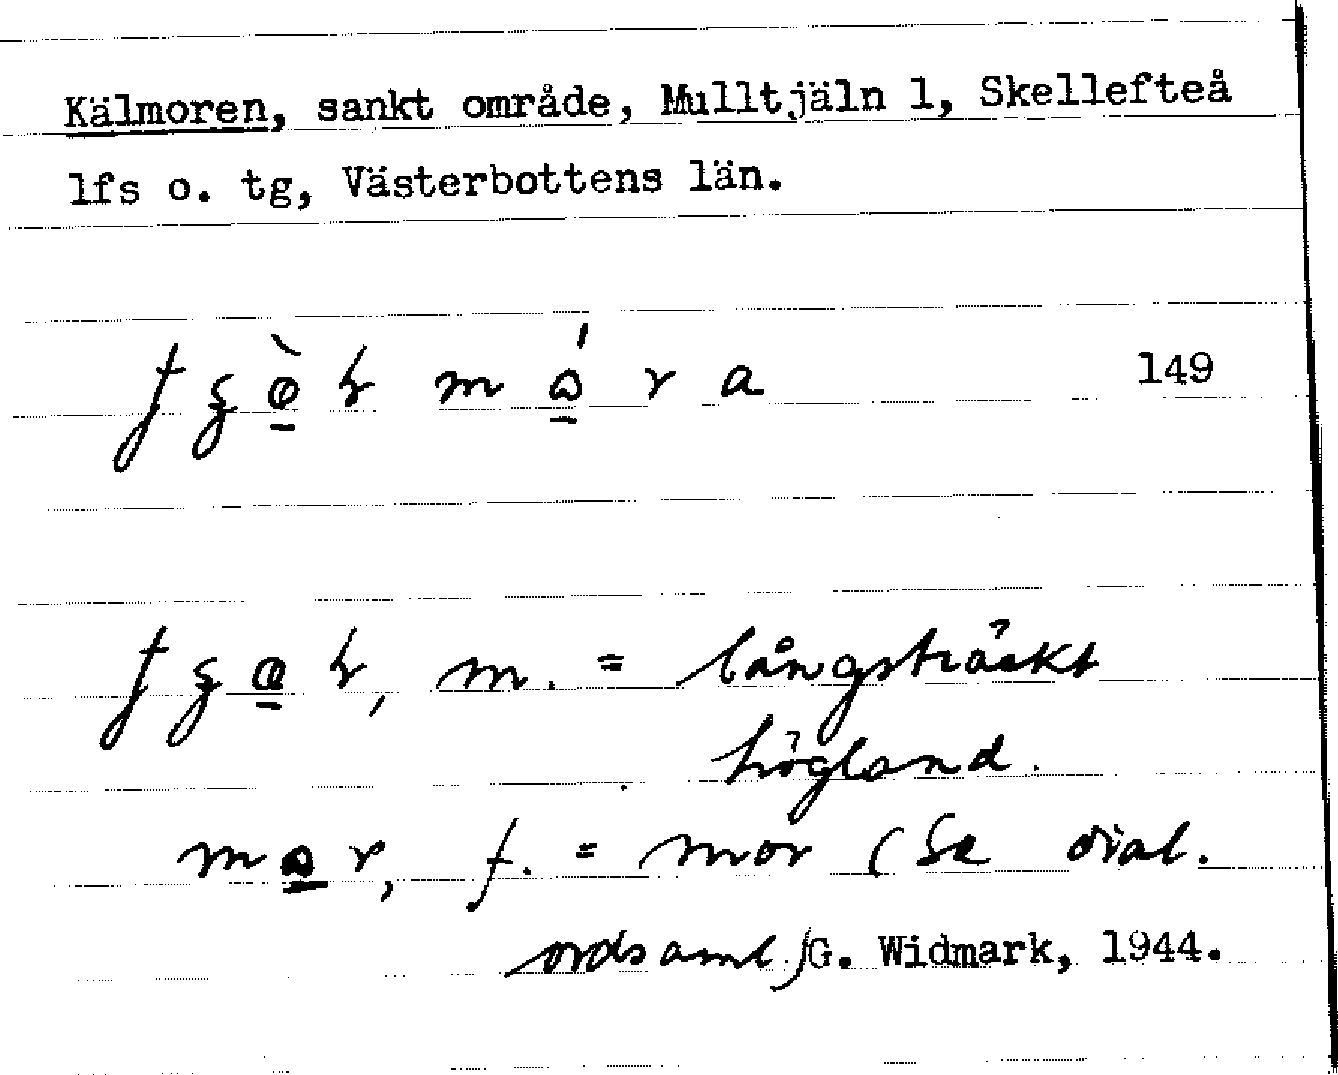 Kälmoren, sankt område, Mulltjäln 1, Skellefteå
lfs o. tg, Västerbottens län.
149
m. = långsträckt
högland.
f. = mor (Se dial.
ordsaml.) G. Widmark, 1944.